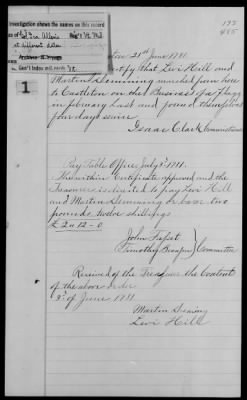 192
485
Investigation shows the names on this record
at different dates
1
21st June 1781.
certify that Levi Hill and
Martin Deming marched from here
to Castleton on the Business of a Flagg
in february Last and found themselves
four days each
Isaac Clark Commissioner
Pay Table Office July 3d 1781.
The within Certificate approved and the
Treasurer is directed to pay Levi Hill
and Martin Deming or order two
pounds twelve shillings
£2"12-0
John Fasset
Timothy Brownson } Committee
Received of the Treasurer the Contents
of the above order
3d of June 1781.
Martin Deming
Levi Hill